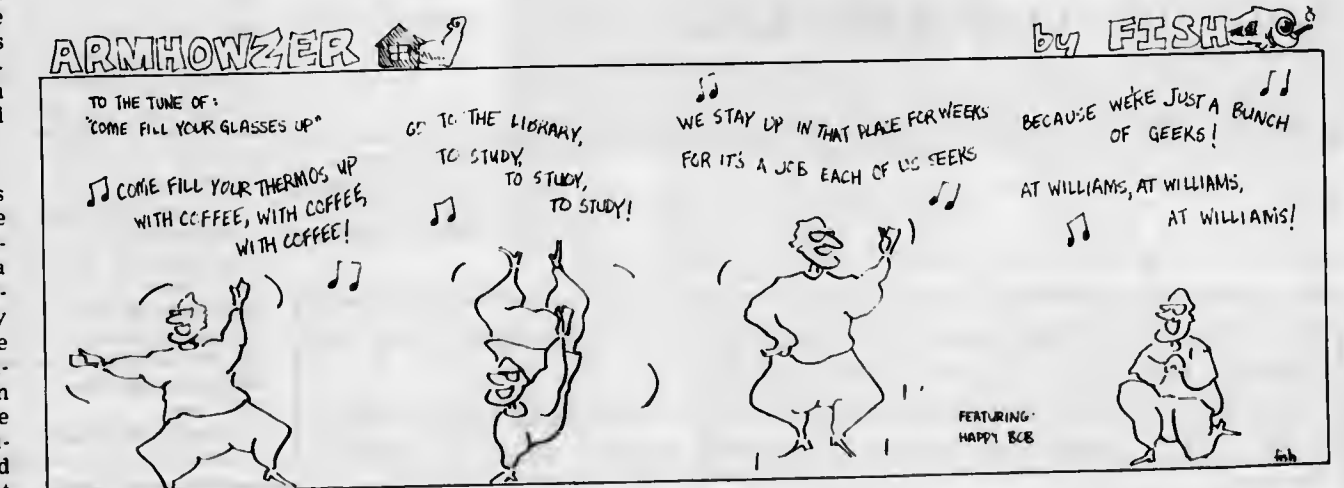 ARMHOWZER
by FISH
TO THE TUNE OF:
"COME FILL YOUR GLASSES UP"
COME FILL YOUR THERMOS UP
WITH COFFEE, WITH COFFEE,
WITH COFFEE!
GO TO THE LIBRARY,
TO STUDY,
TO STUDY,
TO STUDY!
WE STAY UP IN THAT PLACE FOR WEEKS
FOR IT'S A JOB EACH OF US SEEKS
BECAUSE WE'RE JUST A BUNCH
OF GEEKS!
AT WILLIAMS, AT WILLIAMS,
AT WILLIAMS!
FEATURING:
HAPPY BOB
fish